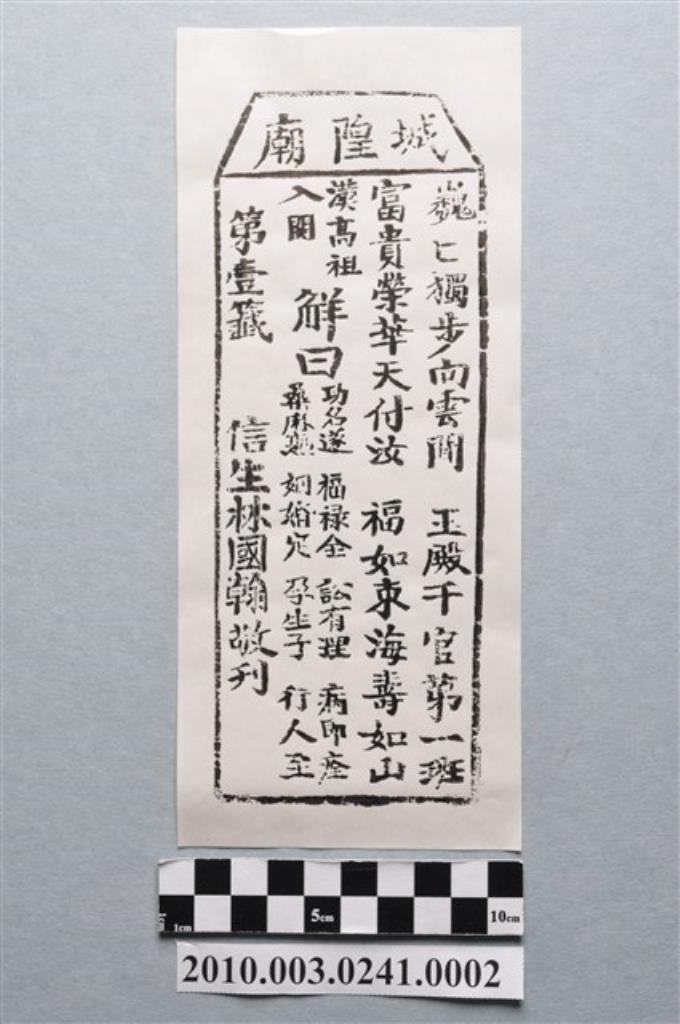 城隍廟
巍匕獨步向雲間 玉殿千官第一班
富貴榮華天付汝 福如東海壽如山
漢高祖
入關
解曰
功名遂 福祿全 訟有理 病即痊
桑麻熟 婚姻定 孕生子 行人至
第壹籤 信生林國翰敬刊
1cm 5cm 10cm
2010.003.0241.0002